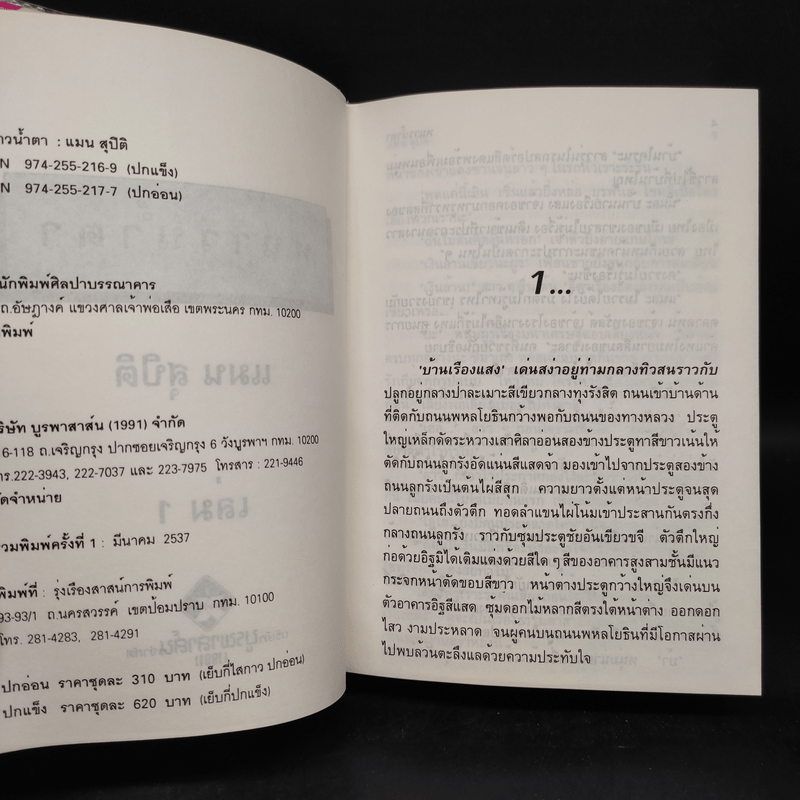 าวน้ำตา : แมน สุปิติ
N 974-255-216-9 (ปกแข็ง)
N 974-255-217-7 (ปกอ่อน)
นักพิมพ์ศิลปาบรรณาคาร
ถ.อัษฎางค์ แขวงศาลเจ้าพ่อเสือ เขตพระนคร กทม. 10200
พิมพ์
ริษัท บูรพาสาส์น (1991) จำกัด
6-118 ถ.เจริญกรุง ปากซอยเจริญกรุง 6 วังบูรพาฯ กทม. 10200
ทร.222-3943, 222-7037 และ 223-7975 โทรสาร : 221-9446
จัดจำหน่าย
วมพิมพ์ครั้งที่ 1 : มีนาคม 2537
พิมพ์ที่ : รุ่งเรืองสาสน์การพิมพ์
93-93/1 ถ.นครสวรรค์ เขตป้อมปราบ กทม. 10100
โทร. 281-4283, 281-4291
ปกอ่อน ราคาชุดละ 310 บาท (เย็บกี่ไสกาว ปกอ่อน)
ปกแข็ง ราคาชุดละ 620 บาท (เย็บกี่ปกแข็ง)
1...
'บ้านเรืองแสง' เด่นสง่าอยู่ท่ามกลางทิวสนราวกับ
ปลูกอยู่กลางป่าละเมาะสีเขียวกลางทุ่งรังสิต ถนนเข้าบ้านด้าน
ที่ติดกับถนนพหลโยธินกว้างพอกับถนนของทางหลวง ประตู
ใหญ่เหล็กดัดระหว่างเสาศิลาอ่อนสองข้างประตูทาสีขาวเน้นให้
ตัดกับถนนลูกรังอัดแน่นสีแสดจ้า มองเข้าไปจากประตูสองข้าง
ถนนลูกรังเป็นต้นไผ่สีสุก ความยาวตั้งแต่หน้าประตูจนสุด
ปลายถนนถึงตัวตึก ทอดลำแขนไผ่โน้มเข้าประสานกันตรงกึ่ง
กลางถนนลูกรัง ราวกับซุ้มประตูชัยอันเขียวขจี ตัวตึกใหญ่
ก่อด้วยอิฐมิได้เติมแต่งด้วยสีใด ๆ สีของอาคารสูงสามชั้นมีแนว
กระจกหน้าตัดขอบสีขาว หน้าต่างประตูกว้างใหญ่จึงเด่นบน
ตัวอาคารอิฐสีแสด ซุ้มดอกไม้หลากสีตรงใต้หน้าต่าง ออกดอก
ไสว งามประหลาด จนผู้คนบนถนนพหลโยธินที่มีโอกาสผ่าน
ไปพบล้วนตะลึงแลด้วยความประทับใจ